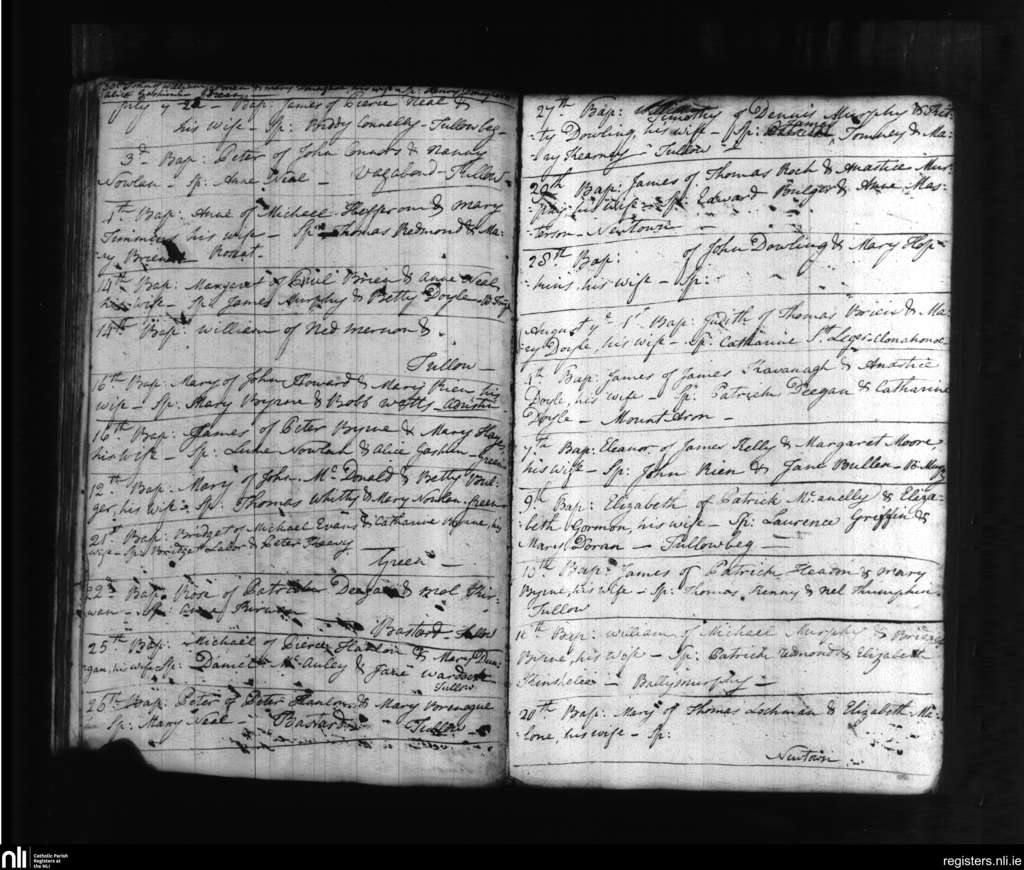 July ye 2d - Bap: James of Pierce Neal &
his wife - Sp: Biddy Connelly - Tullowbeg -
3d Bap: Peter of John Connors & Nancy
Nowlan - Sp: Anne Neal - Vagabond - Tullow -
1th Bap: Anne of Michael Heffrom & Mary
Timmins his wife - Sp: Thomas Redmond & Ma-
ry Brien
14th Bap: Margaret of Phil Brien & Anne Neal
his wife - Sp: James Murphy & Betty Doyle
14th Bap: William of Ned Mernon &
Tullow -
16th Bap: Mary of John Howard & Mary Rien his
wife - Sp: Mary Byrne & Bobb Watts
16th Bap: James of Peter Byrne & Mary
his Wife - Sp: Luke Nowlan & Alice Green
12th Bap: Mary of John McDonald & Betty Bul-
ger, his Wife - Sp: Thomas Whitty & Mary Nowlan - Green
21st Bap: Bridget of Michael Evans & Catharine Byrne, his
wife - Sp: Bridget Lalor & Peter
Green -
22d Bap: Rose of Patrick Deegan & Mol
- Sp: Anne
Bastard - Tullow
25th Bap: Michael of Pierce Hanlon & Mary Dun-
gan, his wife Sp: Daniel McAuley & Jane
Tullow
26th Bap: Peter of Peter Hanlon & Mary
- Sp: Mary Neal - Bastard - Tullow -
27th Bap: Timothy of Dennis Murphy & Kit-
ty Dowling, his wife - Sp: James Tomney & Ma-
ry Kearney Tullow -
29th Bap: James of Thomas Roch & Anastice Mur-
phy, his wife - Sp: Edward Bulger & Anne Mas-
terson - Newtown -
28th Bap: of John Dowling & Mary Hop-
kins, his wife - Sp:
August ye 1st Bap: Judith of Thomas Brien & Ma-
ry Doyle, his wife - Sp: Catharine St Leger
4th Bap: James of James Kavanagh & Anastice
Doyle, his wife - Sp: Patrick Deegan & Catharine
Doyle - Mount Aron -
7th Bap: Eleanor of James Kelly & Margaret Moore
his wife - Sp: John Rien & Jane Bullen - B:Murphy
9th Bap: Elizabeth of Patrick McAnelly & Eliza-
beth Gormon, his wife - Sp: Laurence Griffin &
Mary Doran - Tullowbeg -
15th Bap: James of Patrick Heaton & Mary
Byrne, his wife - Sp: Thomas Kenny & Nel
Tullow
11th Bap: William of Michael Murphy & Bridget
Byrne, his wife - Sp: Patrick Redmond & Elizabeth
Kinshelee - Ballymurphy -
20th Bap: Mary of Thomas Lochman & Elizabeth Ma-
lone, his wife - Sp:
Newtown
nli
Catholic Parish
Registers at
the NLI
registers.nli.ie